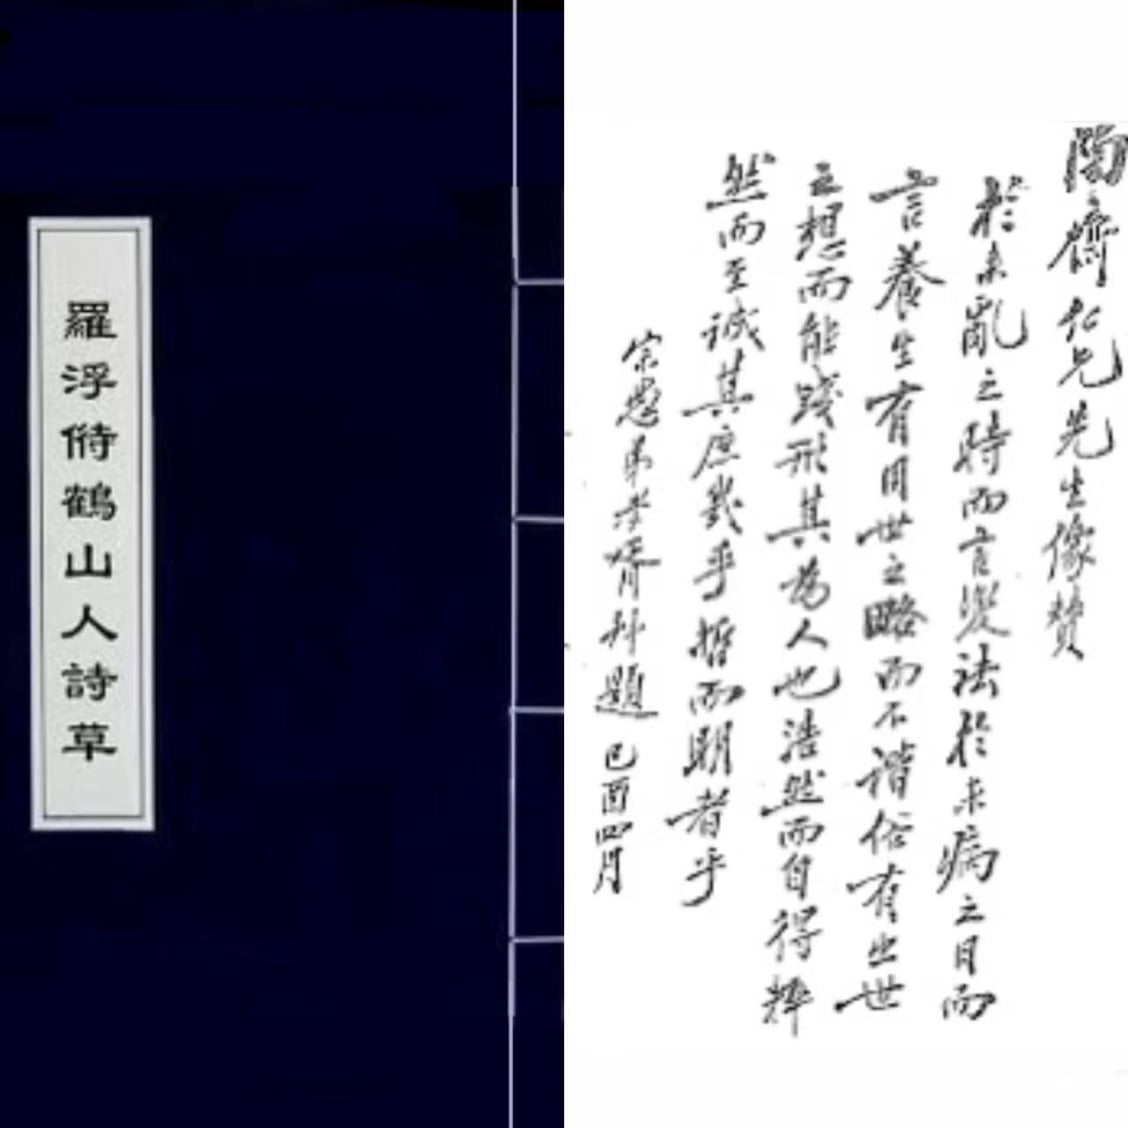 羅浮偫鶴山人詩草
陶齋仁兄先生像贊
於未亂之時而言變法於未病之日而
言養生有用世之略而不諧俗有出世
之想而能踐形其為人也浩然而自得粹
然而至誠其庶幾乎哲而明者乎
宗愚弟孝胥拜題 己酉四月